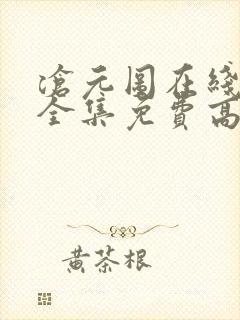 滄元图在綫
全集免費高
黄茶根